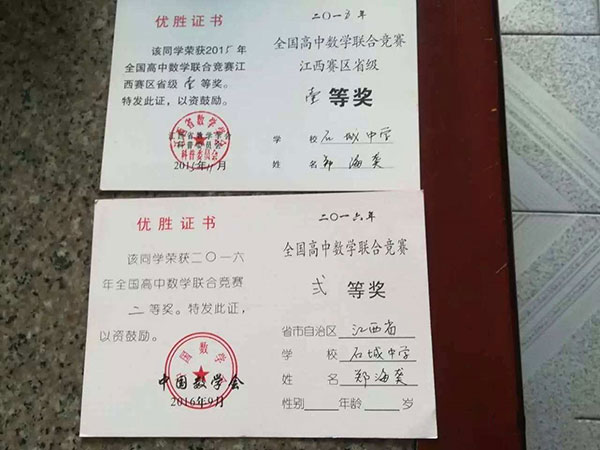 优胜证书
该同学荣获2015年
全国高中数学联合竞赛江
西赛区省级 壹 等奖。
特发此证，以资鼓励。
江西省数学学会
科普委员会
科普委员会
2015年11月
二〇一五年
全国高中数学联合竞赛
江西赛区省级
壹 等奖
学 校 石城中学
姓 名 郑海龚
优胜证书
该同学荣获二〇一六
年全国高中数学联合竞赛
二 等奖。特发此证，
以资鼓励。
中国数学会
2016年9月
二〇一六年
全国高中数学联合竞赛
弍 等奖
省市自治区 江西省
学 校 石城中学
姓 名 郑海龚
性别 年龄 岁